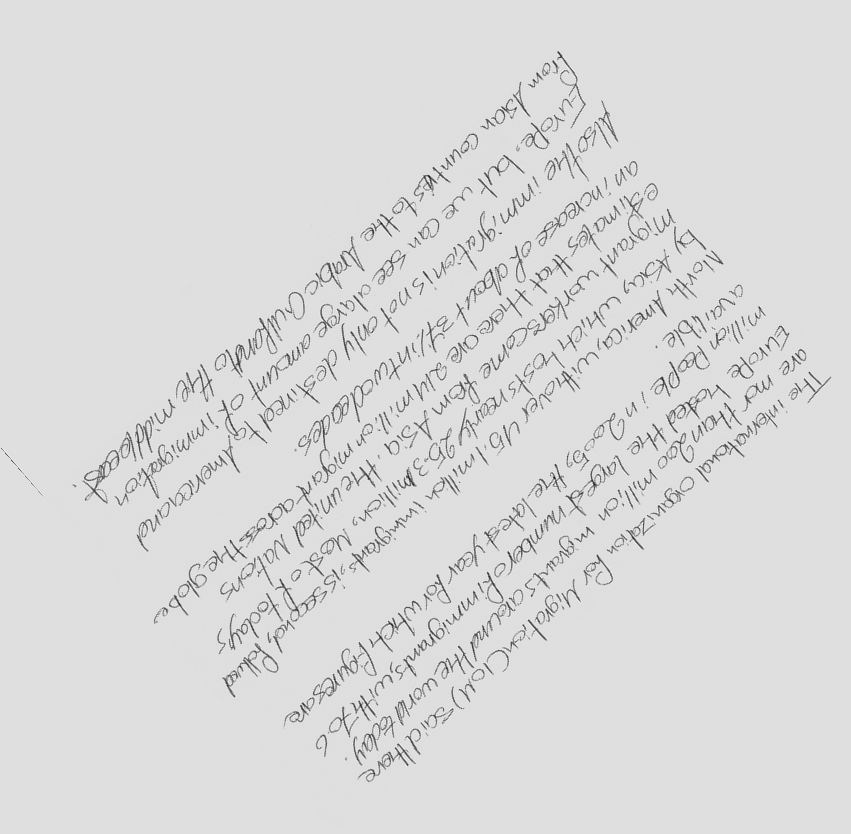 The international organization for Migration (IOM) said there
are mor than 200 million migrants around the world today.
Europe hosted the largest number of immigrants, with 70 6
million people in 2005, the latest year for which figures are
availble.
North America, with over 45.1 million immigrants, is second, follwed
by Asia, which hosts nearly 25.3 million, Most of today,s
migrant workers come from ASia. the united Nations
estimates that there are 214 million migrant across the globe
an increase of about 37% in two decades.
Also the immigration is not only destined to Americe and
Europe, but we can see alarge amount of immigration
from Asian countries to the Arabic Gulf and to the middle east.